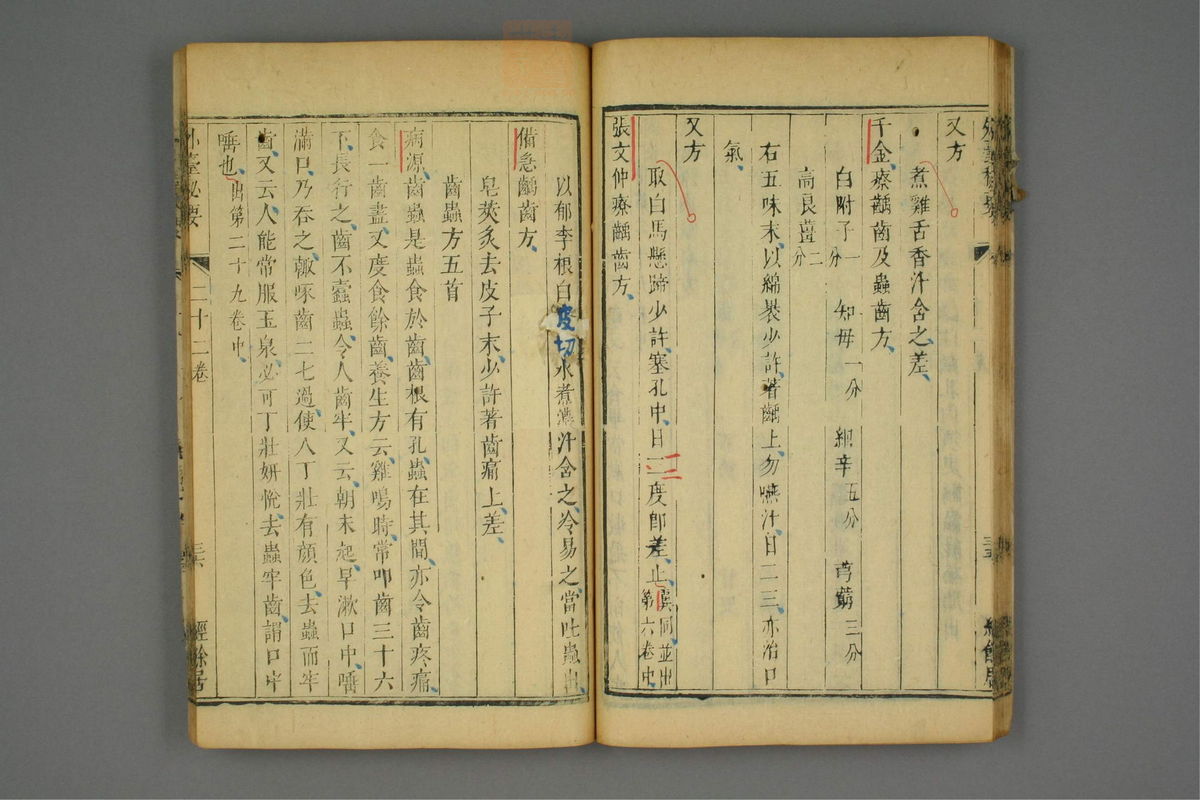 又方
煮雞舌香汁含之差
千金療齲齒及蟲齒方
白附子一分 知母一分 細辛五分 芎藭三分
高良薑二分
右五味末以綿裹少許著齲上勿嚥汁日二三亦治口
氣
又方
取白馬懸蹄少許塞孔中日二三度卽差止
同並出
第六卷中
張文仲療齲齒方
以郁李根白皮切水煮濃汁含之冷易之當吐蟲出
備急齲齒方
皂莢炙去皮子末少許著齒痛上差
齒蟲方五首
病源齒蟲是蟲食於齒齒根有孔蟲在其間亦令齒疼痛
食一齒盡又度食餘齒養生方云雞鳴時常叩齒三十六
下長行之齒不蠹蟲令人齒牢又云朝未起早漱口中唾
滿口乃吞之輙啄齒二七過使人丁壯有顔色去蟲而牢
齒又云人能常服玉泉必可丁壯妍悅去蟲牢齒謂口中
唾也出第二十九卷中
外臺秘要 二十二卷 三六 經餘居